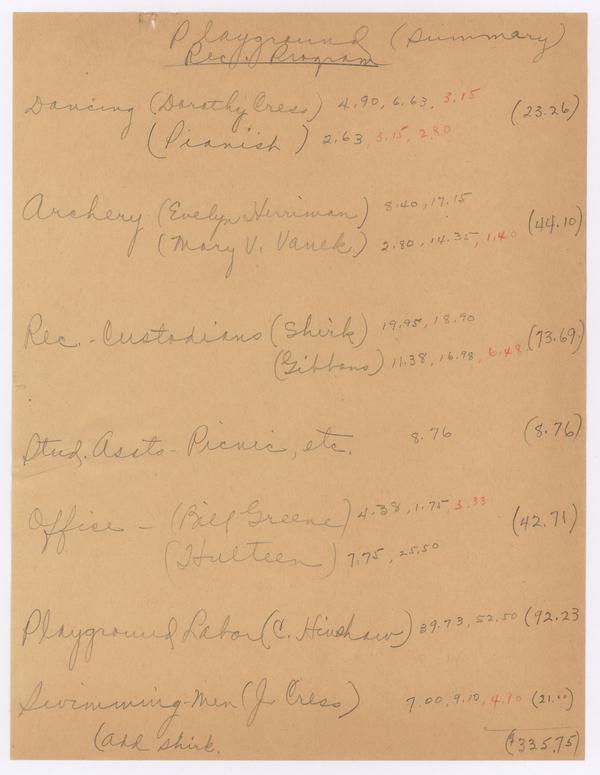 Playground (Summary)
Rec. Program
Dancing (Dorothy Cress) 4.90, 6.63, 3.15 (23.26)
(Pianist) 2.63, 3.15, 2.80
Archery (Evelyn Herriman) 8.40, 17.15
(Mary V. Vanek) 2.80, 14.35, 1.40 (44.10)
Rec. - Custodians (Shirk) 19.95, 18.90 (73.69)
(Gibbons) 11.38, 16.98, 6.48
Stud. Assts - Picnic, etc. 8.76 (8.76)
Office - (Bill Greene) 4.38, 1.75, 3.33 (42.71)
(Hulteen) 7.75, 25.50
Playground Labor (C. Hinshaw) 39.73, 52.50 (92.23
Swimming-Men (J. Cress) 7.00, 9.10, 4.90 (21.00)
(add Shirk. ($335.75)